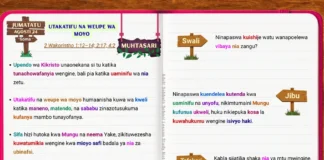 JUMATATU
AGOSTI 24
Soma
UTAKATIFU NA WEUPE WA
MOYO
2 Wakorintho 1:12–14; 2:17; 4:2
MUHTASARI
• Upendo wa Kikristo unaonekana si tu katika
tunachowafanyia wengine, bali pia katika usamilifu wa nia
zetu.
• Utakatifu na weupe wa moyo humaanisha kuwa wa kweli
katika maneno, matendo, na sababu zinazotusukuma
kufanya mambo tunayofanya.
• Sifa hizi hutoka kwa Mungu na neema Yake, zikituwezesha
kuwatumikia wengine kwa mioyo safi badala ya nia za
ubinafsi.
Swali
Ninapaswa kuishije watu wanapoelewa
vibaya nia zangu?
Jibu
Ninapaswa kuendelea kutenda kwa
usamilifu na unyofu, nikimtumaini Mungu
kufunua ukweli, huku nikiepuka kosa la
kuwahukumu wengine isivyo haki.
Kabla